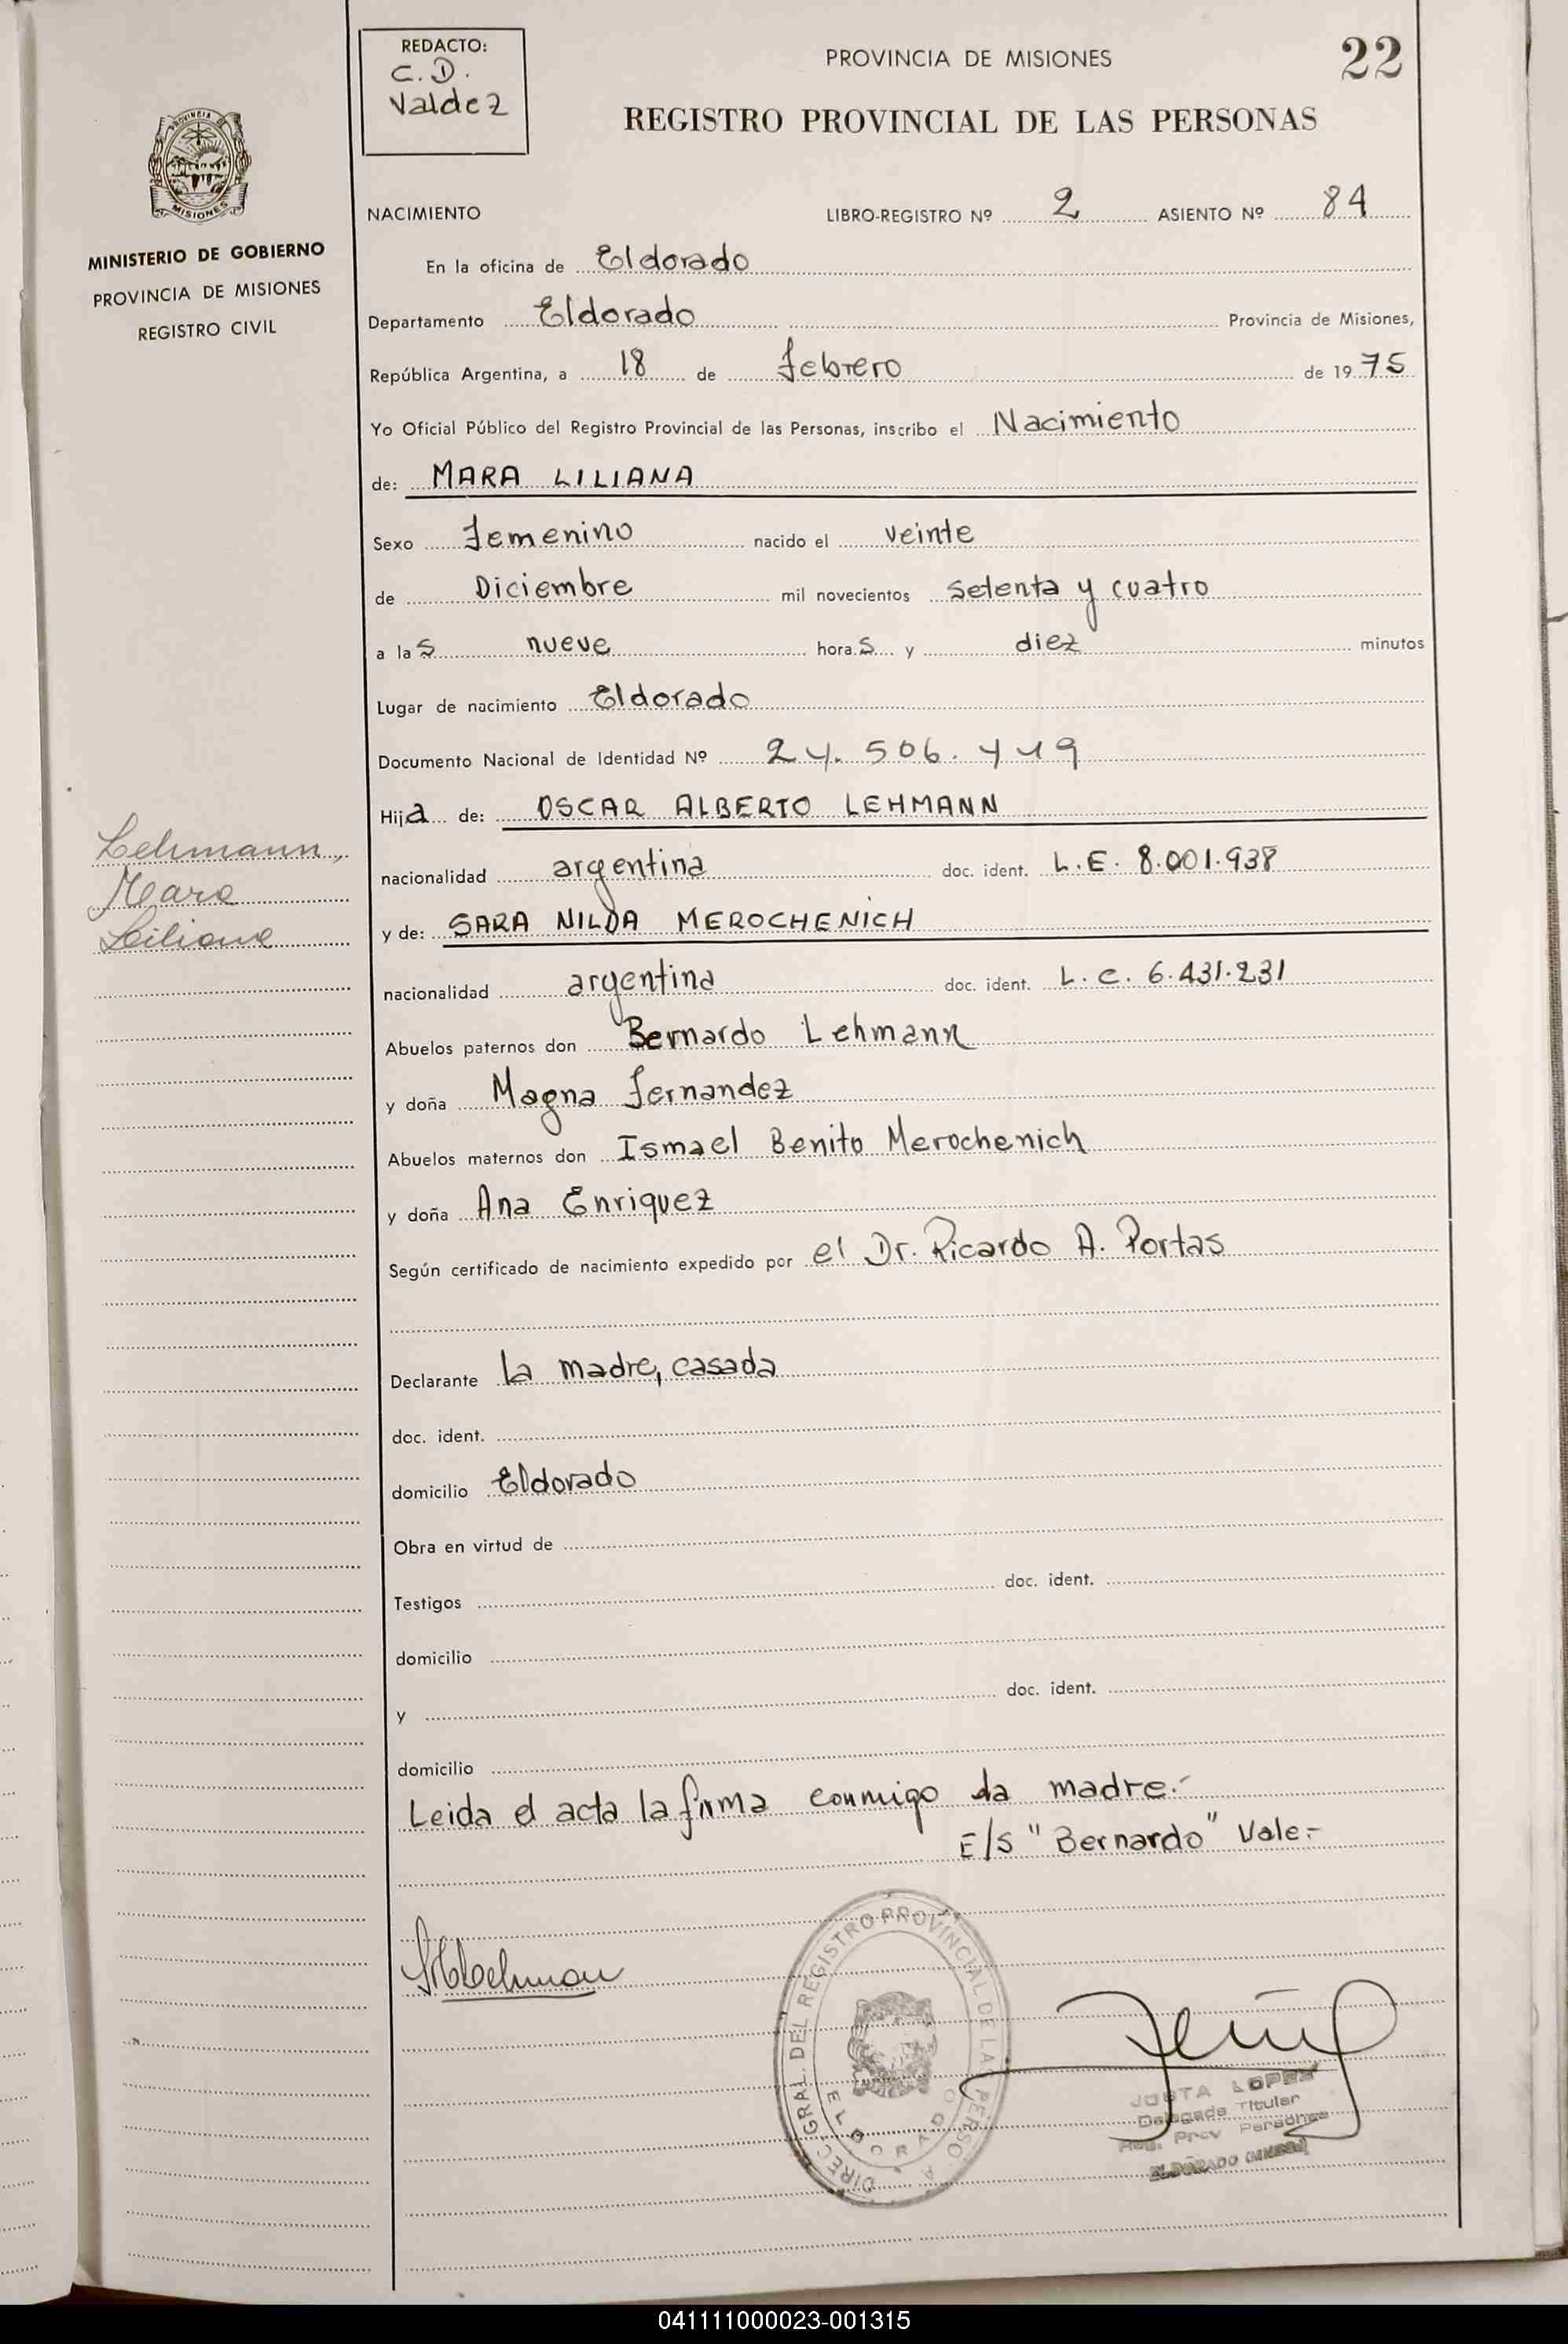 REDACTO:
C. D.
Valdez
PROVINCIA DE MISIONES
22
REGISTRO PROVINCIAL DE LAS PERSONAS
PROVINCIA
MISIONES
MINISTERIO DE GOBIERNO
PROVINCIA DE MISIONES
REGISTRO CIVIL
NACIMIENTO LIBRO-REGISTRO Nº 2 ASIENTO Nº 84
En la oficina de Eldorado
Departamento Eldorado Provincia de Misiones,
República Argentina, a 18 de febrero de 1975
Yo Oficial Público del Registro Provincial de las Personas, inscribo el Nacimiento
de: MARA LILIANA
Sexo femenino nacido el veinte
de Diciembre mil novecientos setenta y cuatro
a las nueve horas y diez minutos
Lugar de nacimiento Eldorado
Documento Nacional de Identidad Nº 24.506.449
Hija de: OSCAR ALBERTO LEHMANN
nacionalidad argentina doc. ident. L.E. 8.001.938
y de: SARA NILDA MEROCHENICH
nacionalidad argentina doc. ident. L.C. 6.431.231
Lehmann,
Mara
Liliana
Abuelos paternos don Bernardo Lehmann
y doña Magna Fernandez
Abuelos maternos don Ismael Benito Merochenich
y doña Ana Enriquez
Según certificado de nacimiento expedido por el Dr. Ricardo A. Portas
Declarante la madre, casada
doc. ident.
domicilio Eldorado
Obra en virtud de
Testigos doc. ident.
domicilio
y doc. ident.
domicilio
Leida el acta la firma conmigo la madre.-
E/S "Bernardo" Vale.-
DIREC. GRAL. DEL REGISTRO PROVINCIAL DE LAS PERSO A
ELDORADO
JUSTA LOPEZ
Delegada Titular
Reg. Prov Personas
ELDORADO
041111000023-001315